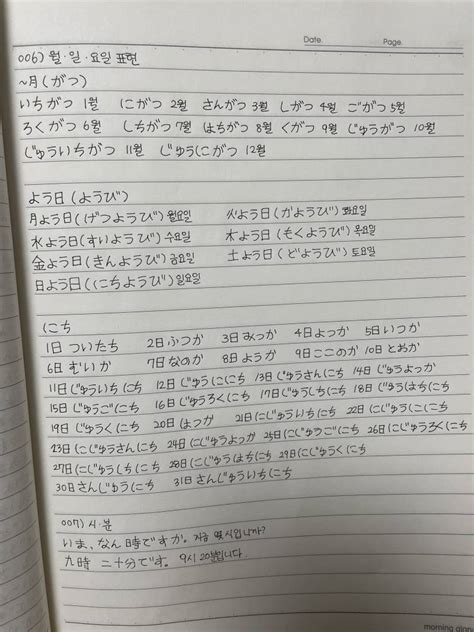 Date. Page.
006) 월·일·요일 표현
~月(がつ)
いちがつ 1월 にがつ 2월 さんがつ 3월 しがつ 4월 ごがつ 5월
ろくがつ 6월 しちがつ 7월 はちがつ 8월 くがつ 9월 じゅうがつ 10월
じゅういちがつ 11월 じゅうにがつ 12월
よう日(ようび)
月よう日(げつようび) 월요일 火よう日(かようび) 화요일
水よう日(すいようび) 수요일 木よう日(もくようび) 목요일
金よう日(きんようび) 금요일 土よう日(どようび) 토요일
日よう日(にちようび) 일요일
にち
1日 ついたち 2日 ふつか 3日 みっか 4日 よっか 5日 いつか
6日 むいか 7日 なのか 8日 ようか 9日 ここのか 10日 とおか
11日 じゅういちにち 12日 じゅうににち 13日 じゅうさんにち 14日 じゅうよっか
15日 じゅうごにち 16日 じゅうろくにち 17日 じゅうしちにち 18日 じゅうはちにち
19日 じゅうくにち 20日 はつか 21日 にじゅういちにち 22日 にじゅうににち
23日 にじゅうさんにち 24日 にじゅうよっか 25日 にじゅうごにち 26日 にじゅうろくにち
27日 にじゅうしちにち 28日 にじゅうはちにち 29日 にじゅうくにち
30日 さんじゅうにち 31日 さんじゅういちにち
007) 시·분
いま、なん時ですか。지금 몇시입니까?
九時 二十分です。 9시 20분입니다.
morning glory